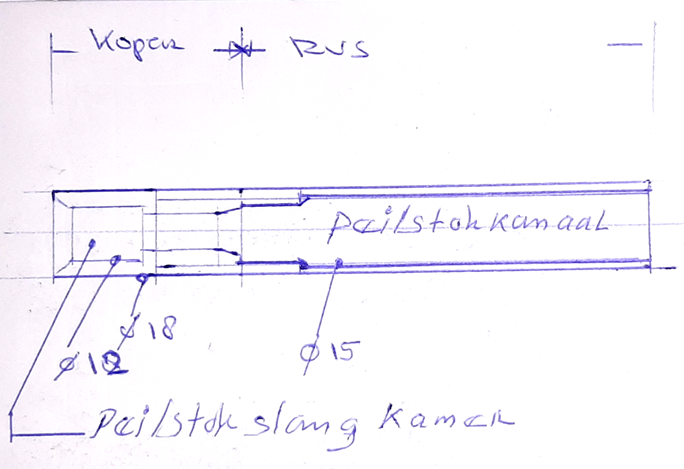 Koper RVS
peilstokkanaal
ø18
ø12 ø15
Peilstok slang kamer